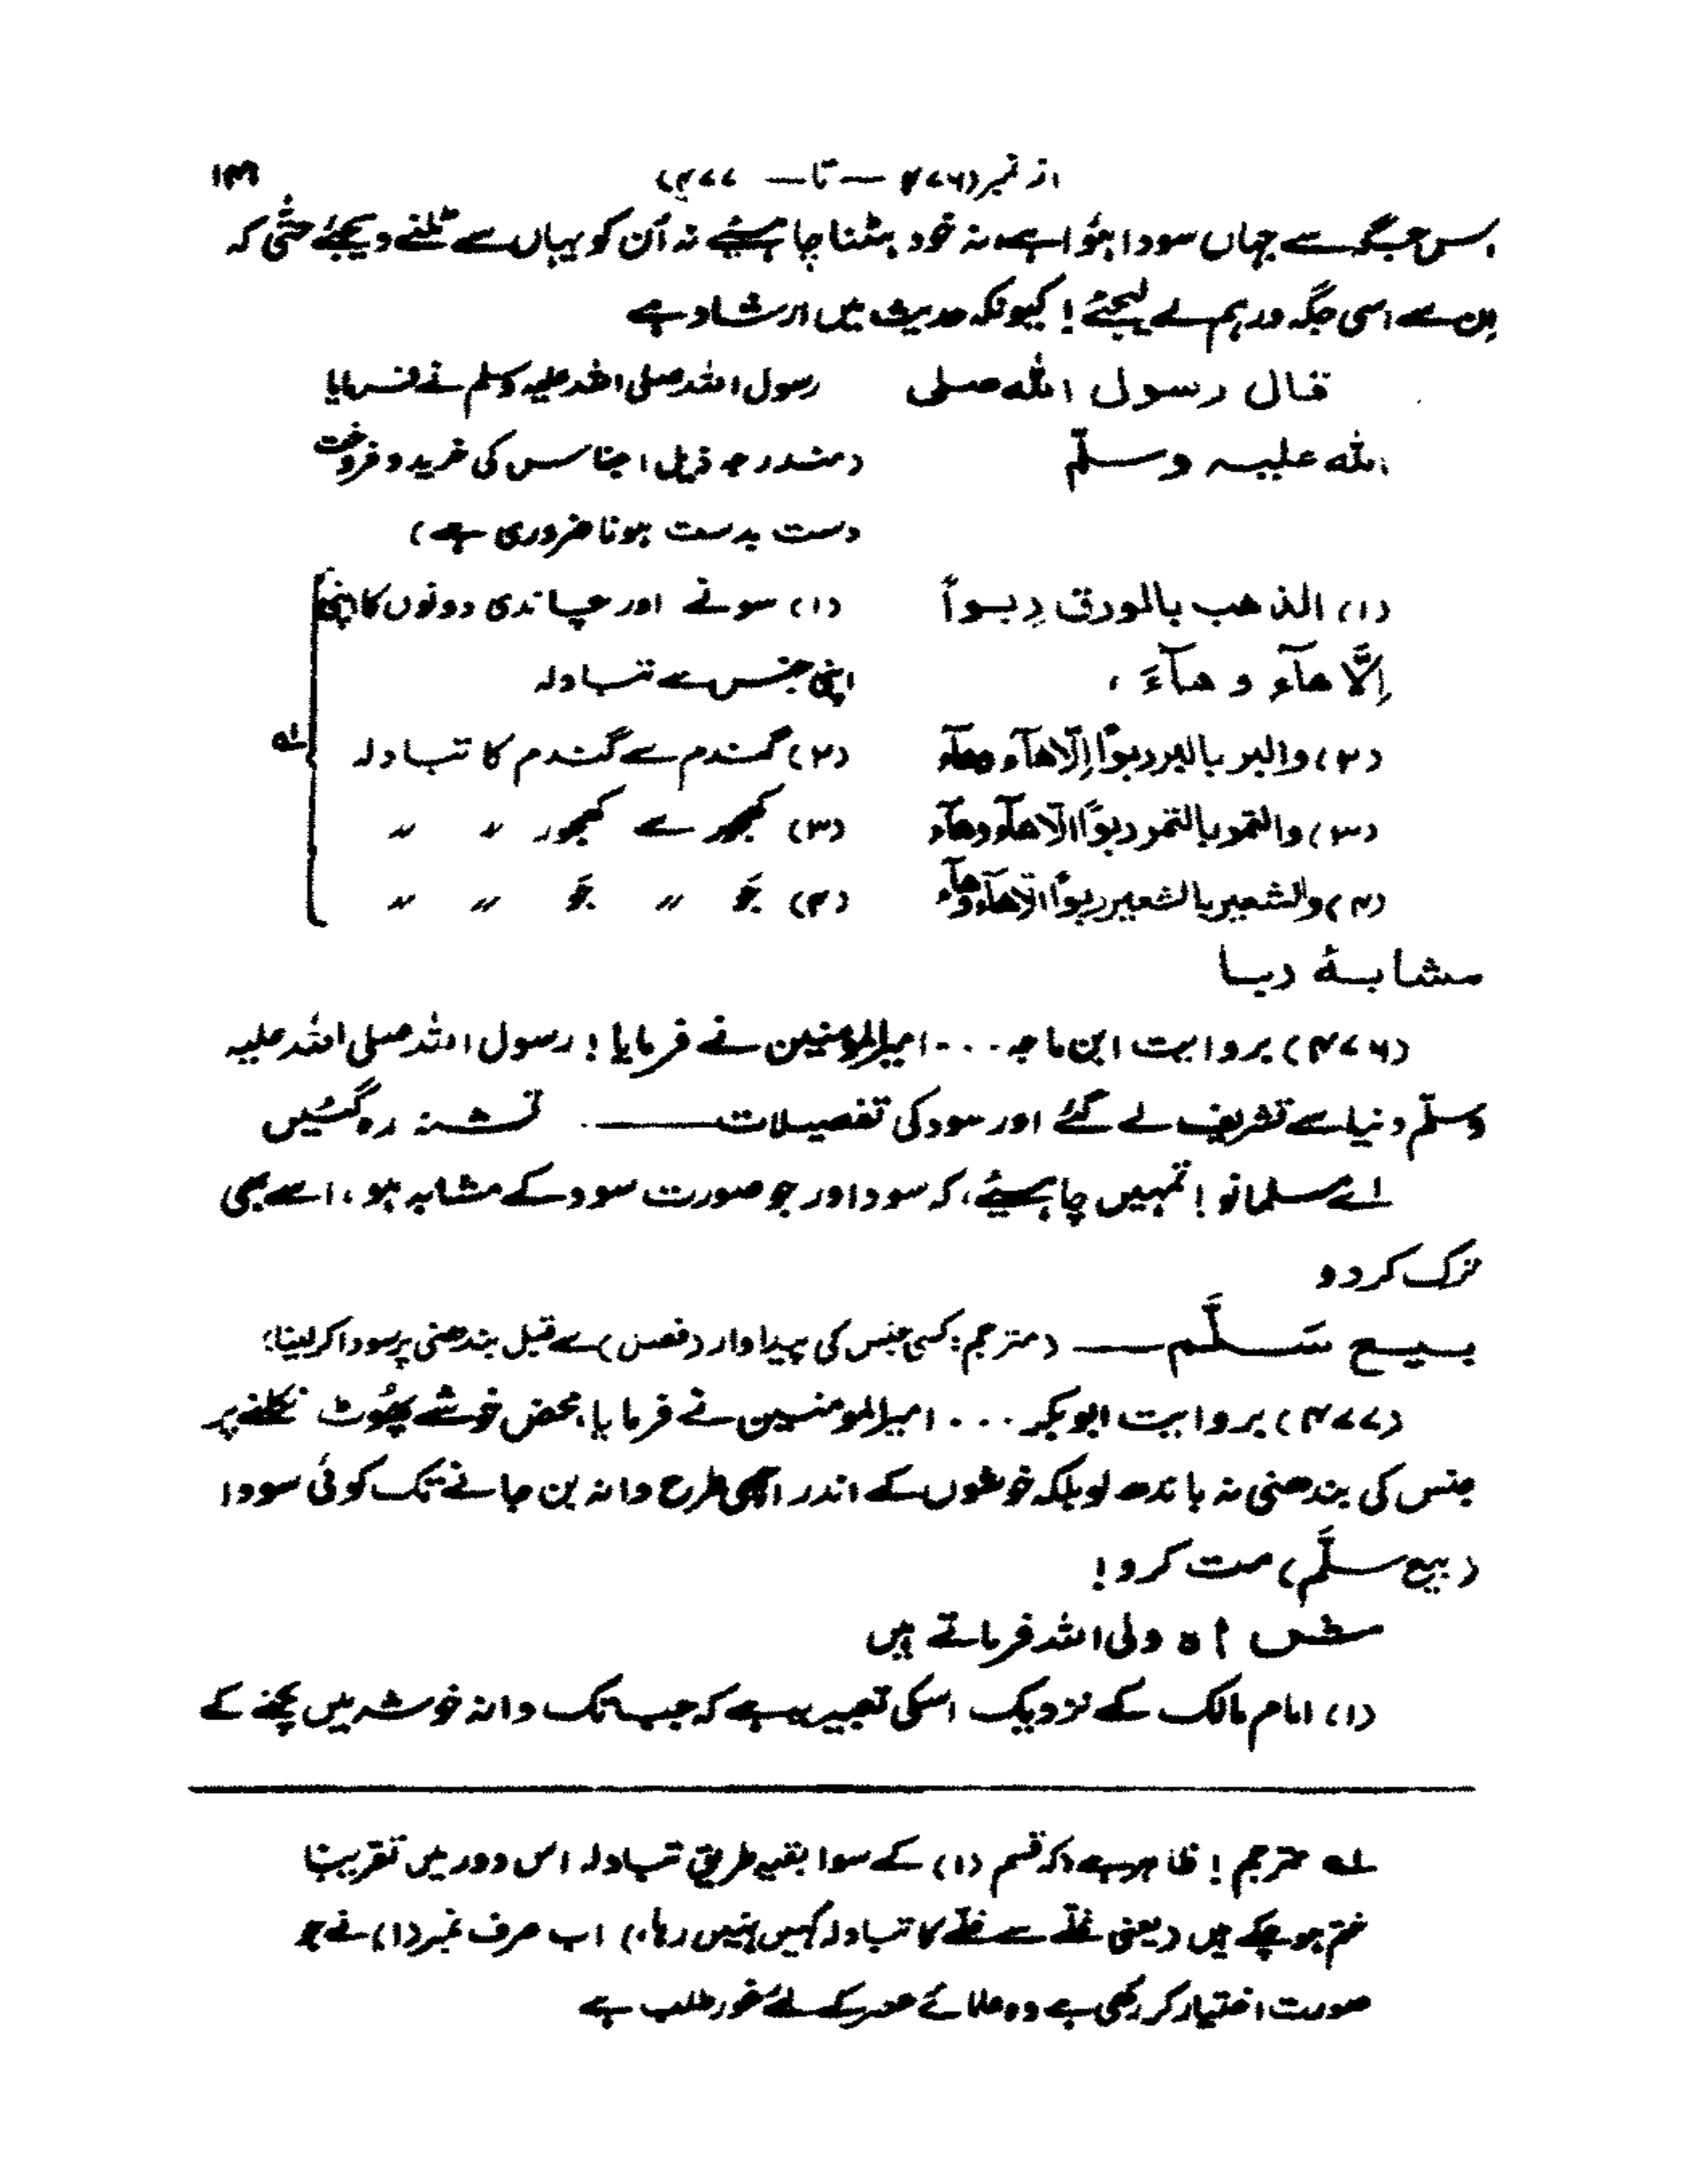 از نمبر (۴۷۶ — تا — ۴۷۷)
اس جگہ سے جہاں سودا ہوُا ہے، نہ خود ہٹنا چاہیئے نہ اُن کو یہاں سے ٹلنے دیجئے حتّٰی کہ
اِن سے اسی جگہ درہم لے لیجئے! کیونکہ حدیث میں ارشاد ہے
قال رسول اللہ صلی
رسول اللہ صلی اللہ علیہ وسلم نے فرمایا
اللہ علیہ وسلّم
(مندرجہ ذیل اجناس کی خرید و فروخت
دست بدست ہونا ضروری ہے)
(۱) الذھب بالورق رِبواً
(۱) سونے اور چاندی دونوں کا اپنی
اِلَّا ھآءِ و ھآءَ ،
اپنی جنس سے تبادلہ
(۲) والبر بالبر ربوًا اِلّا ھآء وھآء
(۲) گندم سے گندم کا تبادلہ
لے
(۳) والتمر بالتمر ربوًا الّا ھآء وھآء
(۳) کھجور سے کھجور 〃 〃
(۴) والشعیر بالشعیر ربوًا الّا ھآء وھآء
(۴) جَو 〃 جَو 〃 〃
مشابۂ ربا
(۴۷۶) بروایت ابن ماجہ ۔۔۔ امیرالمومنین نے فرمایا! رسول اللہ صلی اللہ علیہ
وسلّم دنیا سے تشریف لے گئے اور سود کی تفصیلات ——— تشنہ رہ گئیں
اے مسلمانو! تمہیں چاہیئے، کہ سود اور جو صورت سود کے مشابہ ہو، اسے بھی
ترک کردو
بیع سَلَّم —— (مترجم: کسی جنس کی پیداوار (فصل) سے قبل بندھنی پر سودا کر لینا)
(۴۷۷) بروایت ابوبکر ۔۔۔ امیرالمومنین نے فرمایا، محض خوشے پھُوٹ نکلنے پر
جنس کی بندھنی نہ باندھ لو بلکہ خوشوں کے اندر اچھی طرح دانہ بن جانے تک کوئی سودا
(بیع سلَّم) مت کرو!
شاہ ولی اللہ فرماتے ہیں
(۱) امام مالک کے نزدیک اسکی تعبیر یہ ہے کہ جب تک دانہ خوشہ میں پکنے کے
لے مترجم! ظاہر ہے کہ قسم (۱) کے سوا بقیہ طریق تبادلہ اس دور میں تقریبا
ختم ہو چکے ہیں (یعنی غلّے سے غلّے کا تبادلہ کہیں نہیں رہا،) اب صرف نمبر (۱) نے جو
صورت اختیار کر رکھی ہے وہ علمائے عصر کے لئے غور طلب ہے